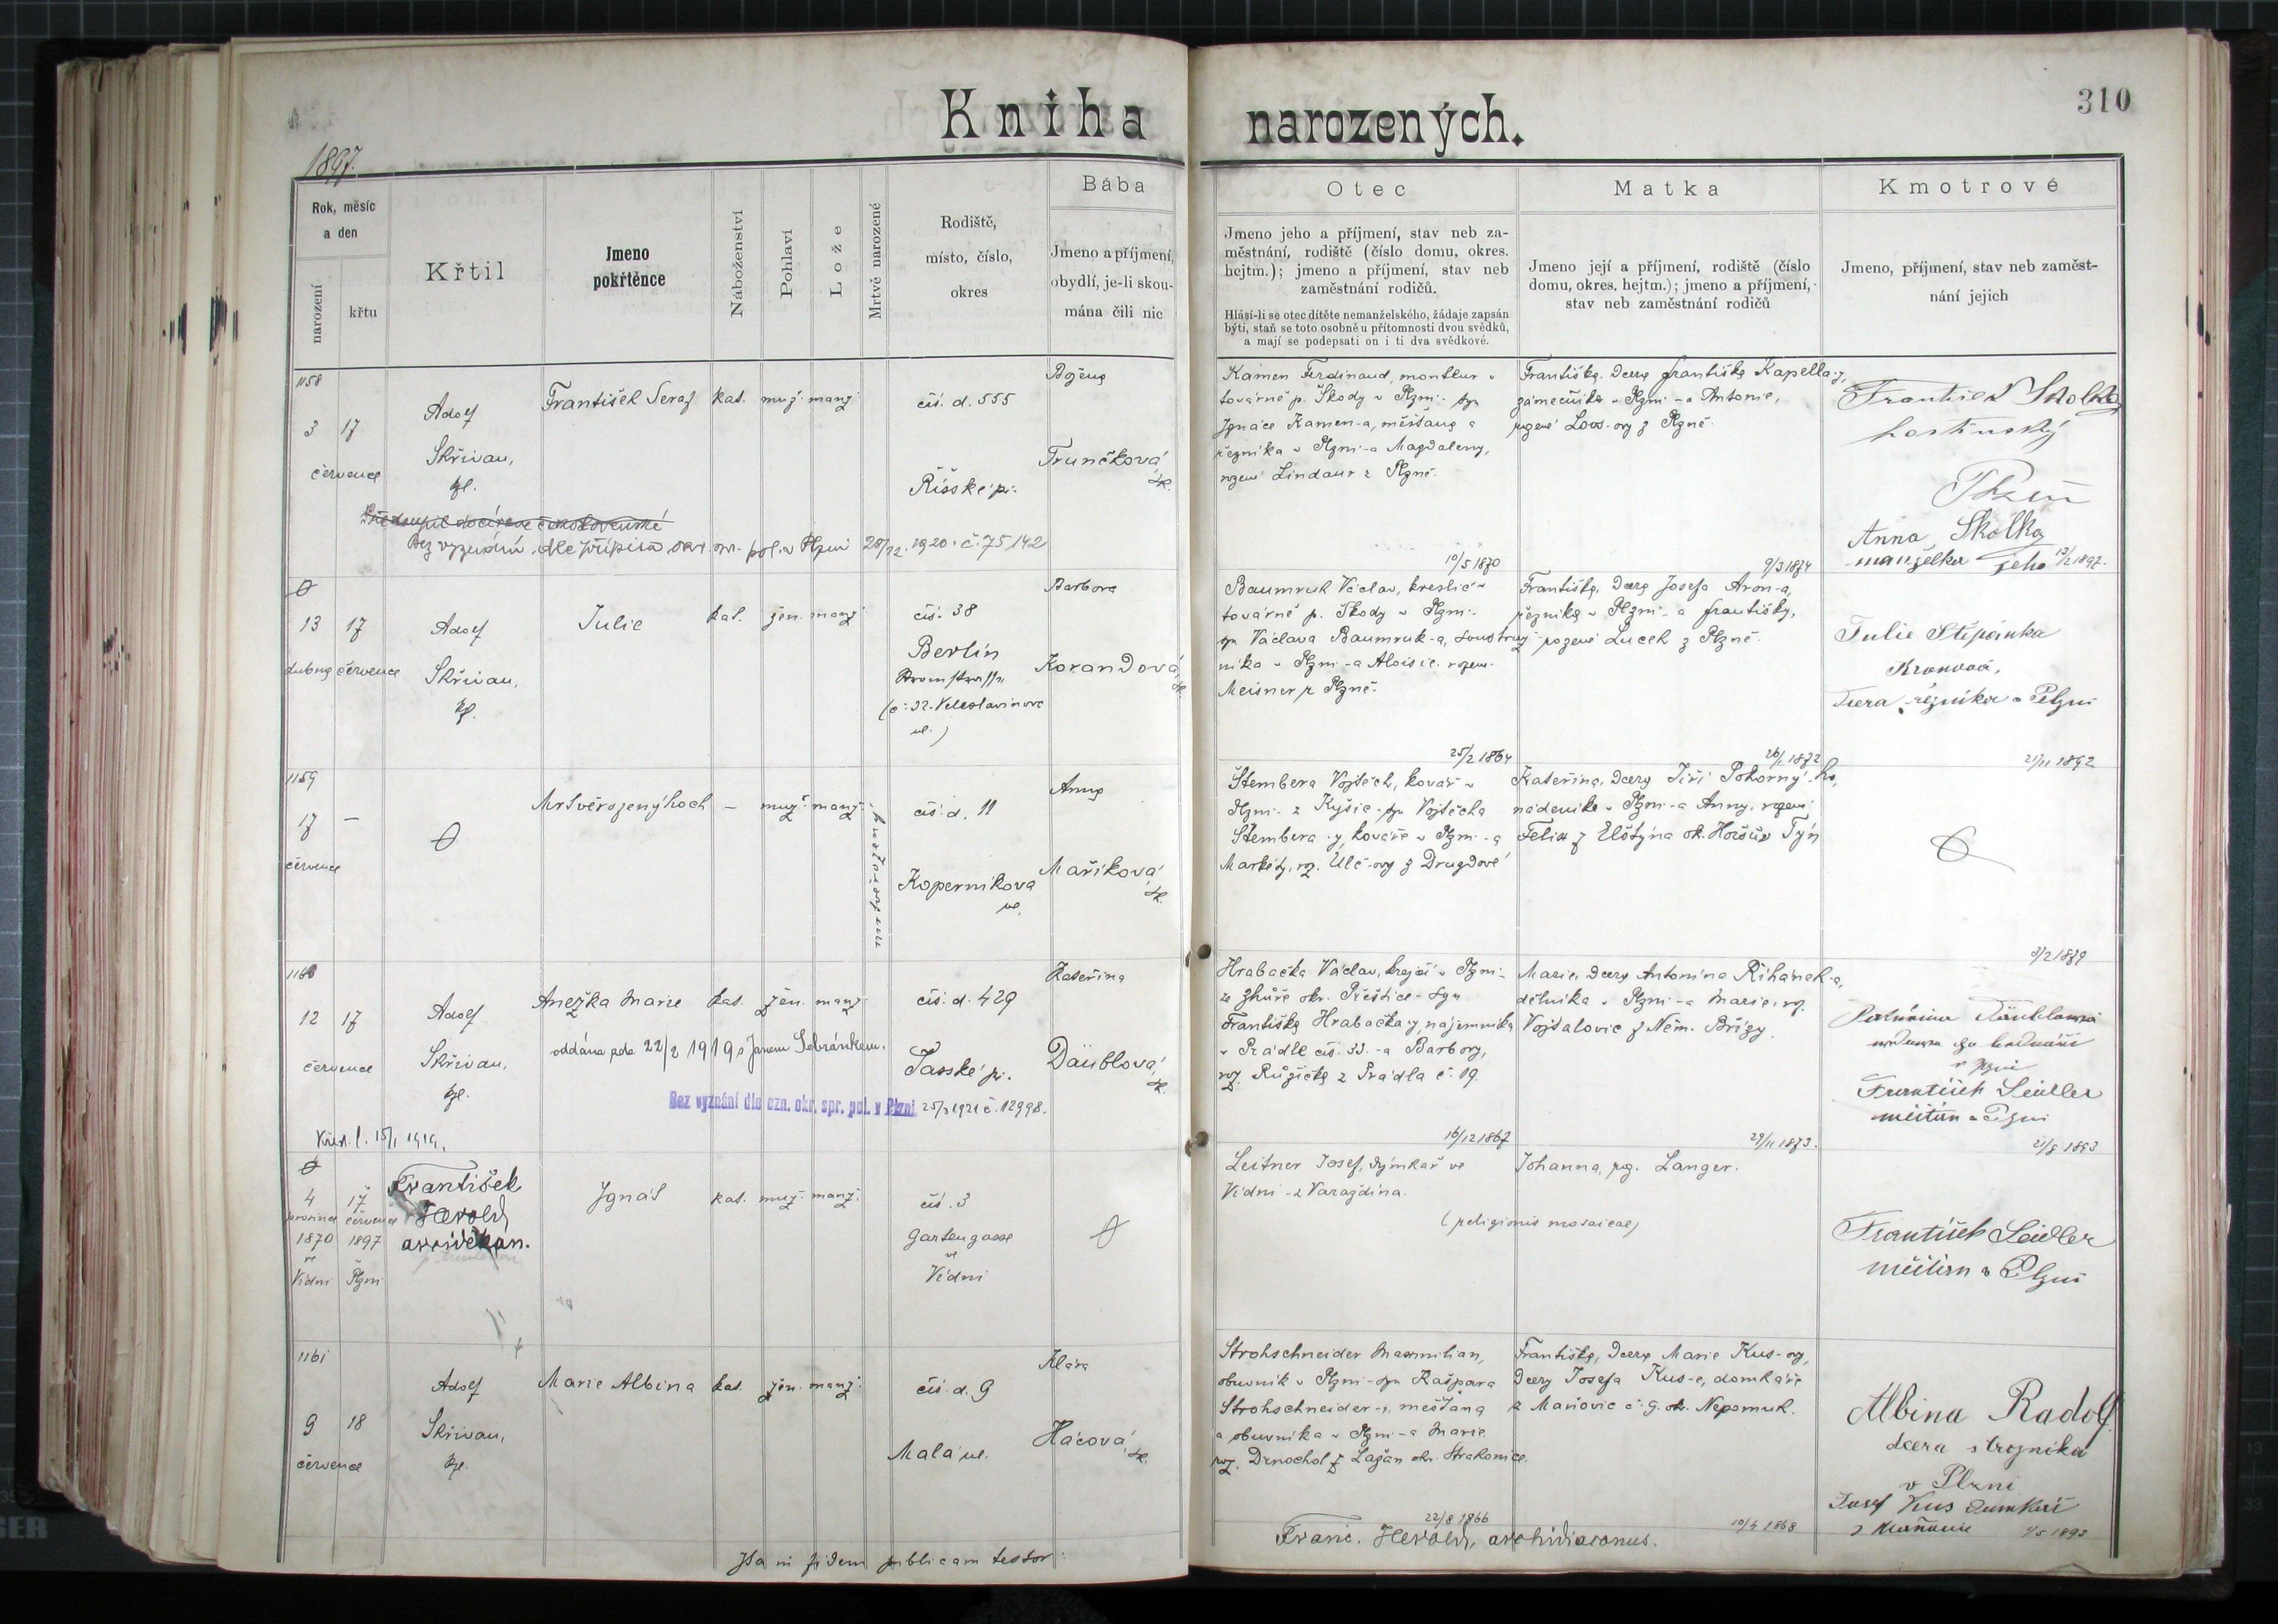 Kniha narozených.
310
1897.
Rok, měsíc a den
narození
křtu
Křtil
Jmeno pokřtěnce
Náboženství
Pohlaví
Lože
Mrtvě narozené
Rodiště, místo, číslo, okres
Bába
Jmeno a příjmení, obydlí, je-li skoumána čili nic
Otec
Jmeno jeho a příjmení, stav neb za-
městnání, rodiště (číslo domu, okres.
hejtm.); jmeno a příjmení, stav neb
zaměstnání rodičů.
Hlásí-li se otec dítěte nemanželského, žádaje zapsán
býti, staň se toto osobně u přítomnosti dvou svědků,
a mají se podepsati on i ti dva svědkové.
Matka
Jmeno její a příjmení, rodiště (číslo
domu, okres, hejtm.); jmeno a příjmení,
stav neb zaměstnání rodičů
Kmotrové
Jmeno, příjmení, stav neb zaměst-
nání jejich
1158
3 17
července
Adolf
Skřivan,
kpl.
František Seraf.
kat.
muž.
manž.
čís. d. 555
Říšské př.
Božena
Trunečková
sk.
Bez vyznání, dle přípisu okr. spr. pol. v Plzni 28/12. 1920. č. 75142
Kamen Ferdinand, monteur v
továrně p. Škody v Plzni - syn
Ignáce Kamen-a, měšťana a
řezníka v Plzni - a Magdaleny,
rozené Lindaur z Plzně.
10/5 1870
Františka, dcera Františka Kapella-y,
zámečníka v Plzni - a Antonie,
rozené Loos-ovy z Plzně.
9/3 1874
František Skolka
hostinský
Plzeň
Anna Skolka
manželka jeho
1897.
13 17
dubna července
Adolf
Skřivan,
kpl.
Julie
kat.
žen.
manž.
čís. 38
Berlín
(č. 32. Veleslavinova
ul.)
Barbora
Korandová,
sk.
Baumruk Václav, kreslič v
továrně p. Škody v Plzni -
syn Václava Baumruk-a, soustruž-
níka v Plzni - a Aloisie, rozen.
Meisner z Plzně.
25/2 1864
Františka, dcera Josefa Aron-a,
řezníka v Plzni - a Františky,
rozené Lucek z Plzně.
26/1 1872
Julie Štěpánka
dcera řezníka v Plzni
21/11 1892
1159
17 -
července
Mrtvěrozený hoch
-
muž.
manž.
mrtvorozený
čís. d. 11
Koperníkova
ul.
Anna
Maříková,
sk.
Štembera Vojtěch, kovář v
Plzni - z Kyšic - syn Vojtěcha
Štembera-y, kováře v Plzni - a
Markéty, roz. Ulč-ovy z Drugdové
Kateřina, dcera Jiří Pokorný-ho,
nádeníka v Plzni - a Anny, rozené
Felix z Elštýna ok. Horšův Týn
3/2 1879
1160
12 17
července
Adolf
Skřivan,
kpl.
Anežka Marie
kat.
žen.
manž.
oddána zde 22/2 1919 s Janem Sebránkem.
Bez vyznání dle ozn. okr. spr. pol. v Plzni 25/3 1921 č. 12998.
čís. d. 429
Tasské př.
Kateřina
Däublová,
sk.
Křest. l. 15/1 1919.
Hrabačka Václav, krejčí v Plzni -
ze Zhůře okr. Přeštice - syn
Františka Hrabačka-y, nájemníka
v Prádle čís. 33. - a Barbory,
roz. Růžička z Prádla č. 19.
16/12 1867
Marie, dcera Antonína Řihánek-a,
dělníka v Plzni - a Marie, roz.
Vojtalovic z Něm. Břízy.
29/11 1873.
Kateřina Däublová
v Plzni
František Seidler
měšťan v Plzni
21/8 1893
4 17
prosince července
1870 1897
ve v
Vídni Plzni
František
Herold
arciděkan.
Ignát
kat.
muž.
manž.
čís. 3
Gartengasse
ve
Vídni
Leitner Josef, dýmkař ve
Vídni - z Varaždína.
Johanna, roz. Langer.
(religionis mosaicae)
František Seidler
měšťan v Plzni
1161
9 18
července
Adolf
Skřivan,
kpl.
Marie Albina
kat.
žen.
manž.
čís. d. 9
Malá ul.
Klára
Hácová,
sk.
Strohschneider Maxmilian,
obuvník v Plzni - syn Kašpara
Strohschneider-a, měšťana
a obuvníka v Plzni - a Marie
roz. Drnochol z Lažan okr. Strakonice.
22/8 1866
Františka, dcera Marie Kus-ovy,
dcery Josefa Kus-e, domkáře
z Maňovic č. 9. ok. Nepomuk.
10/4 1868
Albina Radolf
dcera strojníka
v Plzni
Josef Kus domkář
z Maňovic
1/5 1893
Ita in fidem publicam testor:
Franc. Herold, archidiaconus.